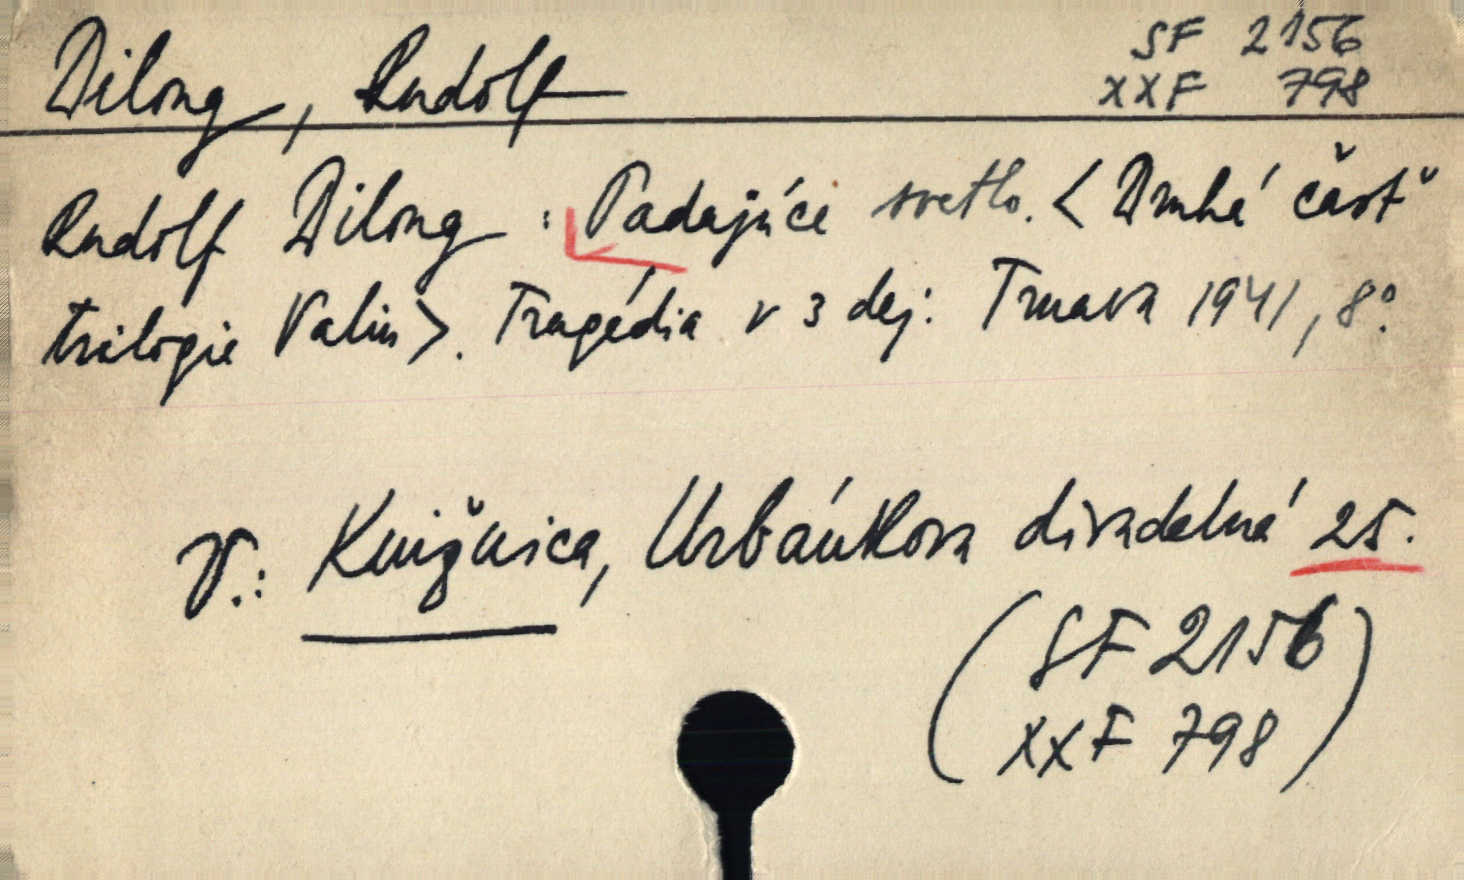 Dilong, Rudolf
SF 2156
XXF 798
Rudolf Dilong: Padajúce svetlo. < Druhá časť
trilogie Valin>. Tragédia v 3 dej. Trnava 1941, 8°.
V.: Knižnica, Urbánkova divadelná 25.
(SF 2156
XXF 798)